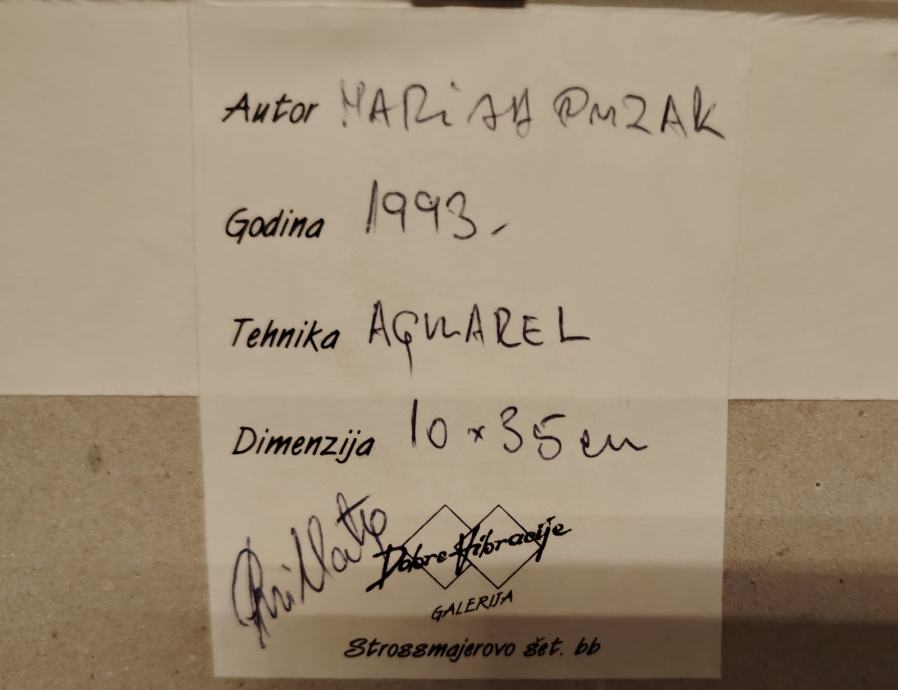 Autor
Godina 1993.
Tehnika AQUAREL
Dimenzija 10 x 35 cm
Dobre Vibracije
GALERIJA
Strossmajerovo šet. bb